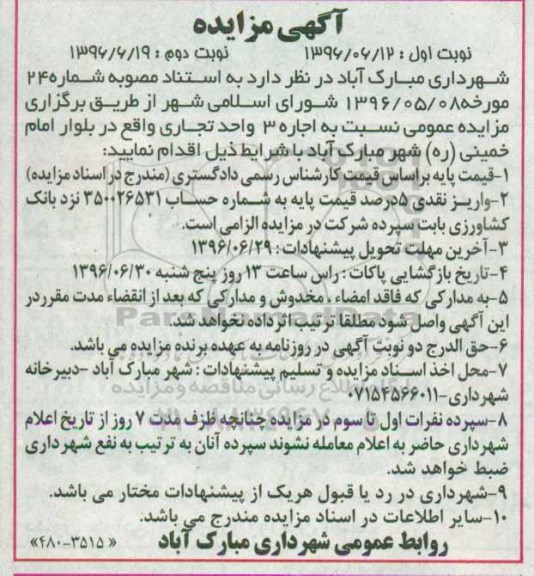 آگهی مزایده
نوبت اول : ۱۳۹۶/۰۶/۱۲ نوبت دوم : ۱۳۹۶/۶/۱۹
شهرداری مبارک آباد در نظر دارد به استناد مصوبه شماره۲۴
مورخه۱۳۹۶/۰۵/۰۸ شورای اسلامی شهر از طریق برگزاری
مزایده عمومی نسبت به اجاره ۳ واحد تجاری واقع در بلوار امام
خمینی (ره) شهر مبارک آباد با شرایط ذیل اقدام نمایید:
۱-قیمت پایه براساس قیمت کارشناس رسمی دادگستری (مندرج در اسناد مزایده)
۲-واریز نقدی ۵درصد قیمت پایه به شماره حساب ۳۵۰۰۲۶۵۳۱ نزد بانک
کشاورزی بابت سپرده شرکت در مزایده الزامی است.
۳-آخرین مهلت تحویل پیشنهادات: ۱۳۹۶/۰۶/۲۹
۴-تاریخ بازگشایی پاکات : راس ساعت ۱۳ روز پنج شنبه ۱۳۹۶/۰۶/۳۰
۵-به مدارکی که فاقد امضاء ، مخدوش و مدارکی که بعد از انقضاء مدت مقرر در
این آگهی واصل شود مطلقا ترتیب اثر داده نخواهد شد.
۶-حق الدرج دو نوبت آگهی در روزنامه به عهده برنده مزایده می باشد.
۷-محل اخذ اسناد مزایده و تسلیم پیشنهادات : شهر مبارک آباد -دبیرخانه
شهرداری-۰۷۱۵۴۵۶۶۰۱۱
۸-سپرده نفرات اول تا سوم در مزایده چنانچه ظرف مدت ۷ روز از تاریخ اعلام
شهرداری حاضر به اعلام معامله نشوند سپرده آنان به ترتیب به نفع شهرداری
ضبط خواهد شد.
۹-شهرداری در رد یا قبول هریک از پیشنهادات مختار می باشد.
۱۰-سایر اطلاعات در اسناد مزایده مندرج می باشد.
روابط عمومی شهرداری مبارک آباد «۴۸۰-۳۵۱۵»
ParsNamadData